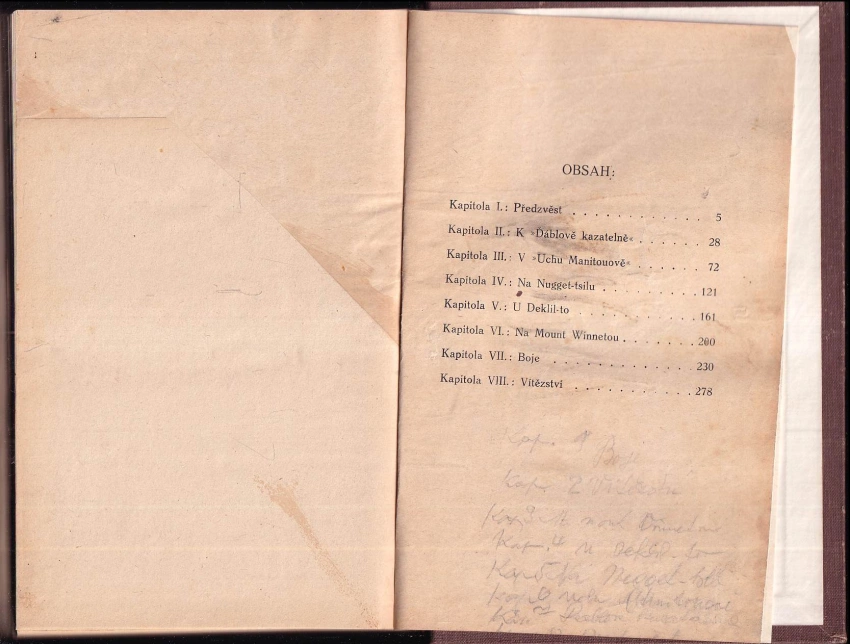 OBSAH:
Kapitola I.: Předzvěst . . . . . . . . . . . . 5
Kapitola II.: K »Ďáblově kazatelně« . . . . . . 28
Kapitola III.: V »Uchu Manitouově« . . . . . . 72
Kapitola IV.: Na Nugget-tsilu . . . . . . . . . 121
Kapitola V.: U Deklil-to . . . . . . . . . . . 161
Kapitola VI.: Na Mount Winnetou . . . . . . . 200
Kapitola VII.: Boje . . . . . . . . . . . . . 230
Kapitola VIII.: Vítězství . . . . . . . . . . . 278
Kap. 1 Boje
Kap. 2
Kap. 3
Kap. 4 u Deklil-to
Kap 5 Na